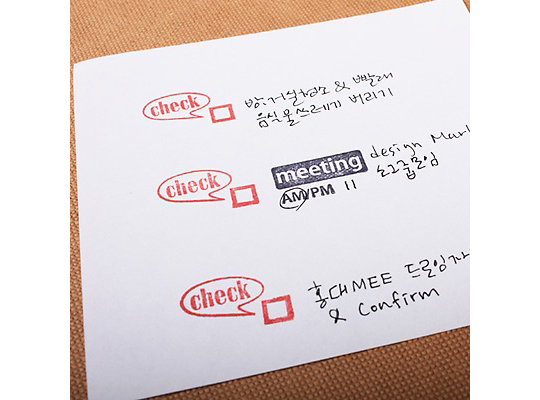 check 방.거실청소 & 빨래
음식물쓰레기 버리기
check meeting design Mar
AM/PM 11 소그룹모임
check 홍대MEE 드로잉
& Confirm